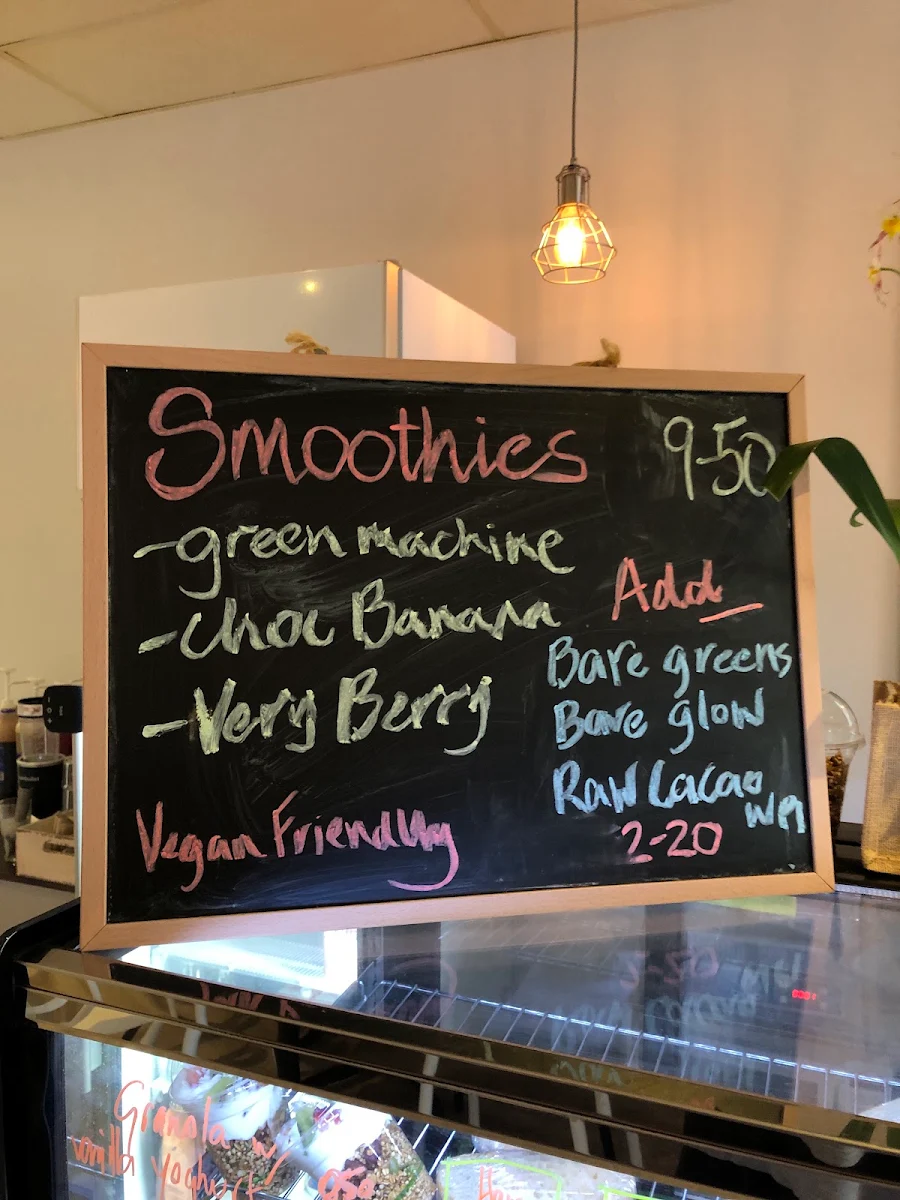 Smoothies 9-50
- green machine
- Choc Banana
- Very Berry
Add
Bare greens
Bare glow
Raw Cacao WPI
2-20
Vegan Friendly
Granola w/
vanilla yoghurt